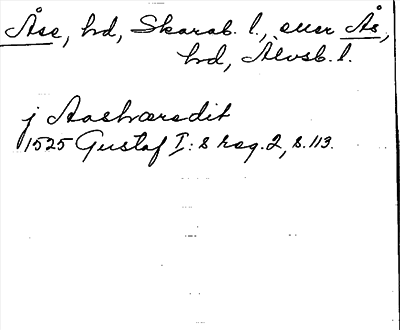 Åse, hd, Skarab. l., eller Ås,
hd, Älvsb. l.
j Aashæradit
1525 Gustaf I:s reg. 2, s. 113.